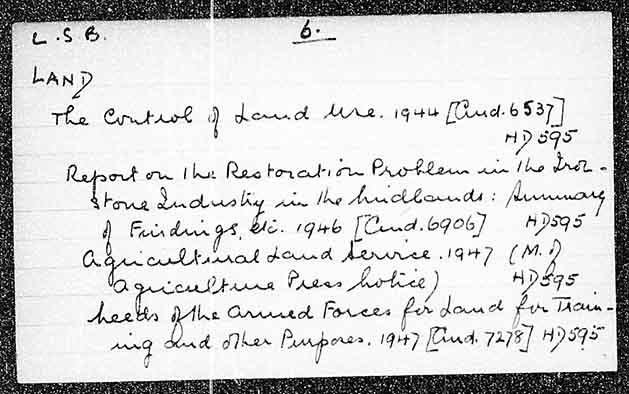 L.S.B. 6.
LAND
The Control of Land Use. 1944 [Cmd. 6537]
HD 595
Report on the Restoration Problem in the Iron-
stone Industry in the Midlands: Summary
of Findings, etc. 1946 [Cmd. 6906] HD595
Agricultural Land Service. 1947 (M. of
Agriculture Press Notice) HD595
Needs of the Armed Forces for Land for Train-
ing and other Purposes. 1947 [Cmd. 7278] HD595